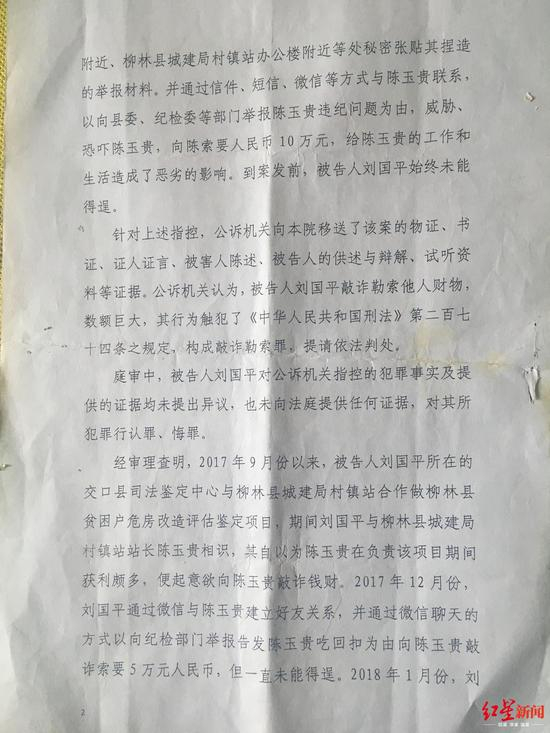 附近、柳林县城建局村镇站办公楼附近等处秘密张贴其捏造
的举报材料。并通过信件、短信、微信等方式与陈玉贵联系，
以向县委、纪检委等部门举报陈玉贵违纪问题为由，威胁、
恐吓陈玉贵，向陈索要人民币 10 万元，给陈玉贵的工作和
生活造成了恶劣的影响。到案发前，被告人刘国平始终未能
得逞。
针对上述指控，公诉机关向本院移送了该案的物证、书
证、证人证言、被害人陈述、被告人的供述与辩解、试听资
料等证据。公诉机关认为，被告人刘国平敲诈勒索他人财物，
数额巨大，其行为触犯了《中华人民共和国刑法》第二百七
十四条之规定，构成敲诈勒索罪，提请依法判处。
庭审中，被告人刘国平对公诉机关指控的犯罪事实及提
供的证据均未提出异议，也未向法庭提供任何证据，对其所
犯罪行认罪、悔罪。
经审理查明，2017 年 9 月份以来，被告人刘国平所在的
交口县司法鉴定中心与柳林县城建局村镇站合作做柳林县
贫困户危房改造评估鉴定项目，期间刘国平与柳林县城建局
村镇站站长陈玉贵相识，其自以为陈玉贵在负责该项目期间
获利颇多，便起意欲向陈玉贵敲诈钱财。2017 年 12 月份，
刘国平通过微信与陈玉贵建立好友关系，并通过微信聊天的
方式以向纪检部门举报告发陈玉贵吃回扣为由向陈玉贵敲
诈索要 5 万元人民币，但一直未能得逞。2018 年 1 月份，刘
2
红星新闻